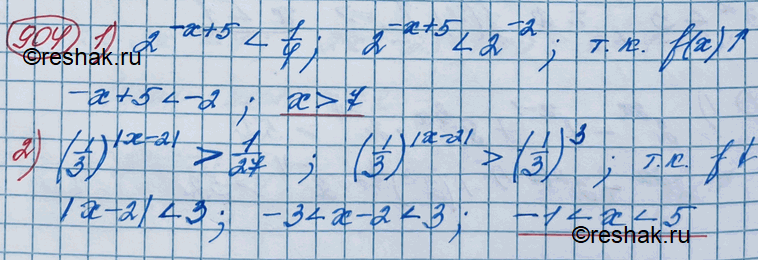 904 1) 2^{-x+5} < 1/4; 2^{-x+5} < 2^{-2}; т.к. f(x)↑
©reshak.ru
-x+5<-2; x>7
2) (1/3)^{|x-2|} > 1/27; (1/3)^{|x-2|} > (1/3)^3; т.к. f↓
|x-2|<3; -3<x-2<3; -1<x<5
©reshak.ru